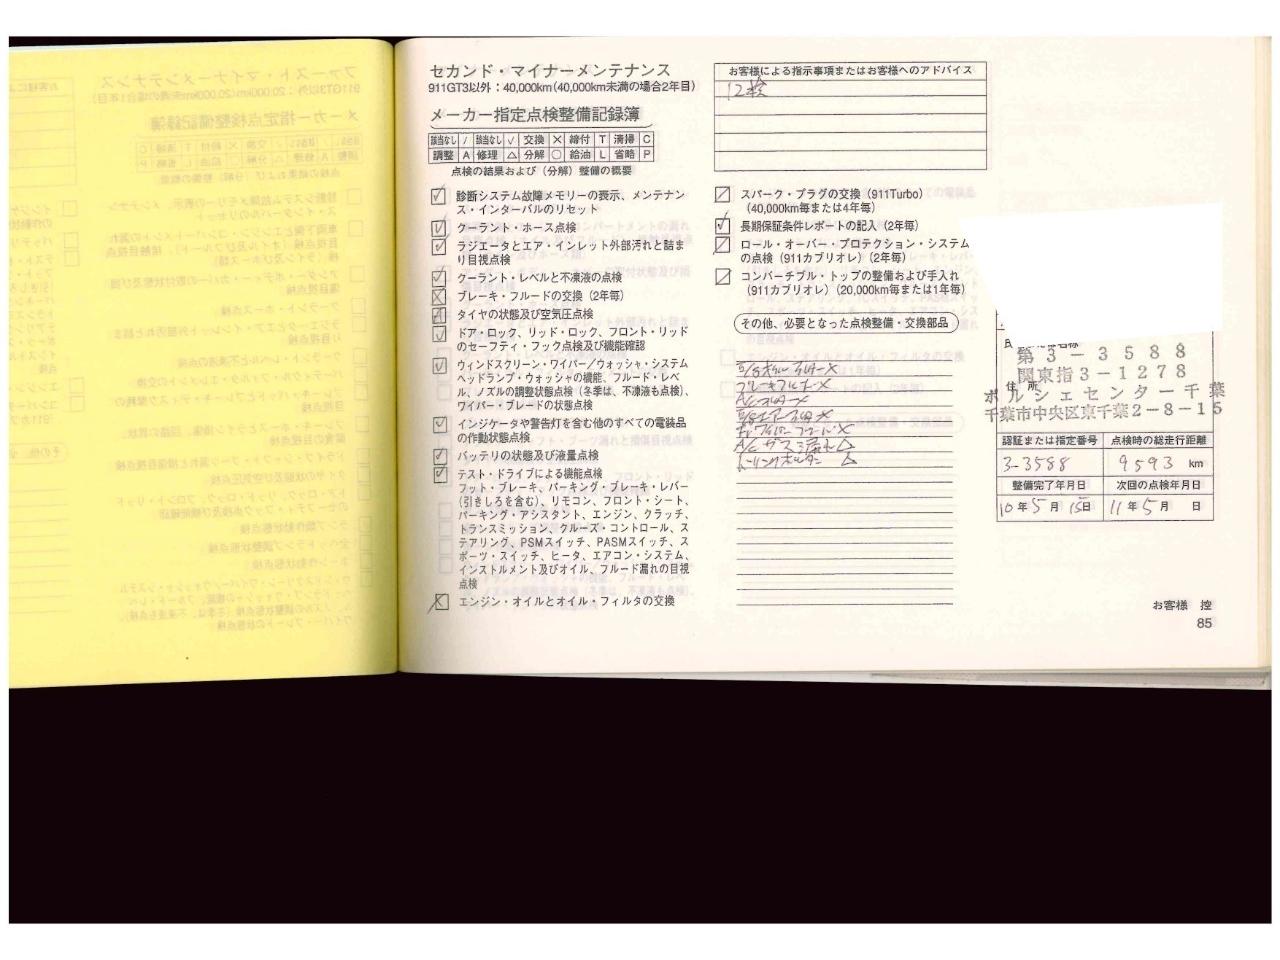 セカンド・マイナーメンテナンス
911GT3以外：40,000km(40,000km未満の場合2年目)
メーカー指定点検整備記録簿
該当なし / 該当なし √ 交換 × 締付 T 清掃 C
調整 A 修理 △ 分解 ○ 給油 L 省略 P
点検の結果および（分解）整備の概要
診断システム故障メモリーの表示、メンテナン
ス・インターバルのリセット
クーラント・ホース点検
ラジエータとエア・インレット外部汚れと詰ま
り目視点検
クーラント・レベルと不凍液の点検
ブレーキ・フルードの交換（2年毎）
タイヤの状態及び空気圧点検
ドア・ロック、リッド・ロック、フロント・リッド
のセーフティ・フック点検及び機能確認
ウィンドスクリーン・ワイパー／ウォッシャ・システム
ヘッドランプ・ウォッシャの機能、フルード・レベ
ル、ノズルの調整状態点検（冬季は、不凍液も点検）、
ワイパー・ブレードの状態点検
インジケータや警告灯を含む他のすべての電装品
の作動状態点検
バッテリの状態及び液量点検
テスト・ドライブによる機能点検
フット・ブレーキ、パーキング・ブレーキ・レバー
（引きしろを含む）、リモコン、フロント・シート、
パーキング・アシスタント、エンジン、クラッチ、
トランスミッション、クルーズ・コントロール、ス
テアリング、PSMスイッチ、PASMスイッチ、ス
ポーツ・スイッチ、ヒータ、エアコン・システム、
インストルメント及びオイル、フルード漏れの目視
点検
エンジン・オイルとオイル・フィルタの交換
お客様による指示事項またはお客様へのアドバイス
12検
スパーク・プラグの交換（911Turbo）
（40,000km毎または4年毎）
長期保証条件レポートの記入（2年毎）
ロール・オーバー・プロテクション・システム
の点検（911カブリオレ）（2年毎）
コンバーチブル・トップの整備および手入れ
（911カブリオレ）（20,000km毎または1年毎）
その他、必要となった点検整備・交換部品
ブレーキフルード×
第3－3588
関東指3－1278
住所
ポルシェセンター千葉
千葉市中央区東千葉2－8－15
認証または指定番号 点検時の総走行距離
3-3588 9593 km
整備完了年月日 次回の点検年月日
10年5月15日 11年5月 日
お客様 控
85